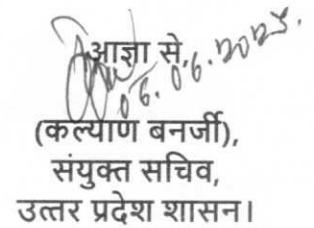 आज्ञा से,
06.06.2025.
(कल्याण बनर्जी),
संयुक्त सचिव,
उत्तर प्रदेश शासन।